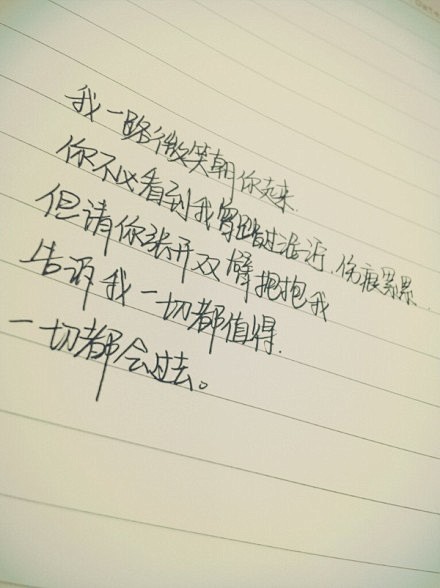 我一路微笑朝你走来.
你不必看到我曾踏过泥泞.伤痕累累...
但请你张开双臂拥抱我
告诉我一切都值得.
一切都会过去。